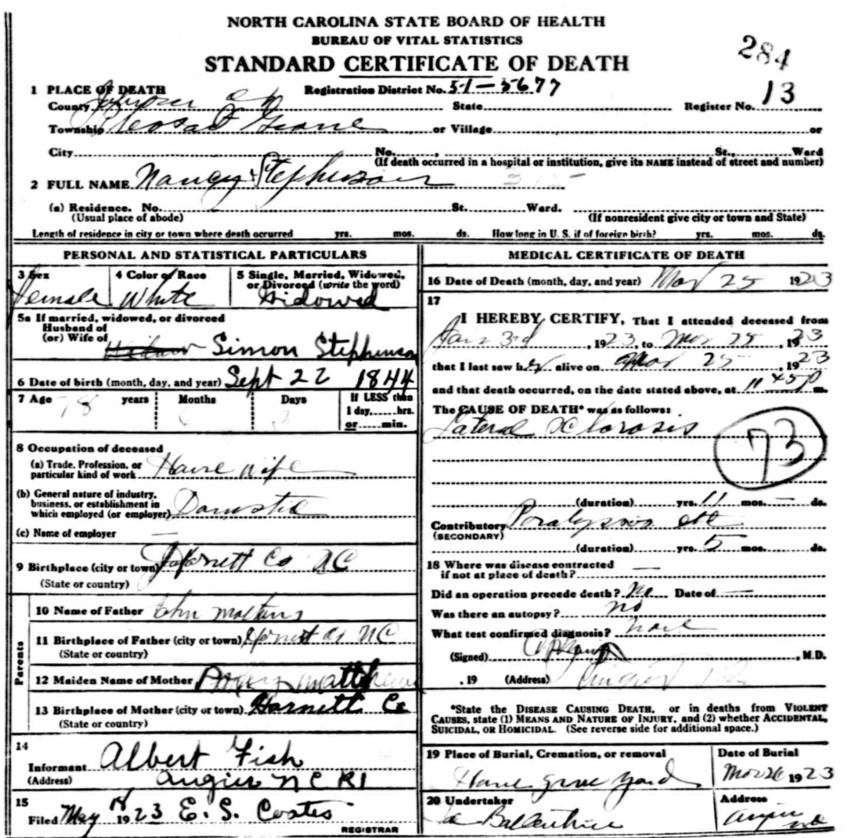 NORTH CAROLINA STATE BOARD OF HEALTH
BUREAU OF VITAL STATISTICS
STANDARD CERTIFICATE OF DEATH
284
1 PLACE OF DEATH Registration District No. 51-5677
County State Register No. 13
Township Grove or Village or
City No. St., Ward
(If death occurred in a hospital or institution, give its NAME instead of street and number)
2 FULL NAME Nancy Stephenson
(a) Residence. No. St. Ward.
(Usual place of abode) (If nonresident give city or town and State)
Length of residence in city or town where death occurred yrs. mos. ds. How long in U. S. if of foreign birth? yrs. mos. ds.
PERSONAL AND STATISTICAL PARTICULARS
3 Sex 4 Color or Race 5 Single, Married, Widowed, or Divorced (write the word)
Female White Widowed
5a If married, widowed, or divorced
Husband of
(or) Wife of Simon Stephenson
6 Date of birth (month, day, and year) Sept 22 1844
7 Age 78 years 6 Months 3 Days If LESS than 1 day,....hrs. or.....min.
8 Occupation of deceased
(a) Trade, Profession, or particular kind of work House wife
(b) General nature of industry, business, or establishment in which employed (or employer) Domestic
(c) Name of employer —
9 Birthplace (city or town) Harnett Co NC
(State or country)
Parents
10 Name of Father
11 Birthplace of Father (city or town) Harnett Co NC
(State or country)
12 Maiden Name of Mother Matthews
13 Birthplace of Mother (city or town) Harnett Co
(State or country)
14
Informant Albert Fish
(Address) Angier NC R1
15
Filed May 1923 E. S. Coats
REGISTRAR
MEDICAL CERTIFICATE OF DEATH
16 Date of Death (month, day, and year) Mar 25 1923
17
I HEREBY CERTIFY, That I attended deceased from
Jan 3rd, 1923, to Mar 25, 1923
that I last saw her alive on Mar 25 1923
and that death occurred, on the date stated above, at 11 45 P m.
The CAUSE OF DEATH* was as follows:
Lateral Sclorosis
73
(duration) yrs. 11 mos. — ds.
Contributory
(SECONDARY)
(duration) yrs. 5 mos. ds.
18 Where was disease contracted
if not at place of death? —
Did an operation precede death? No Date of —
Was there an autopsy? no
What test confirmed diagnosis? none
(Signed) , M.D.
, 19 (Address) Angier
*State the DISEASE CAUSING DEATH, or in deaths from VIOLENT CAUSES, state (1) MEANS AND NATURE OF INJURY, and (2) whether ACCIDENTAL, SUICIDAL, OR HOMICIDAL. (See reverse side for additional space.)
19 Place of Burial, Cremation, or removal Date of Burial
Home grave yard Mar 26 1923
20 Undertaker Address
Ballentine Angier NC